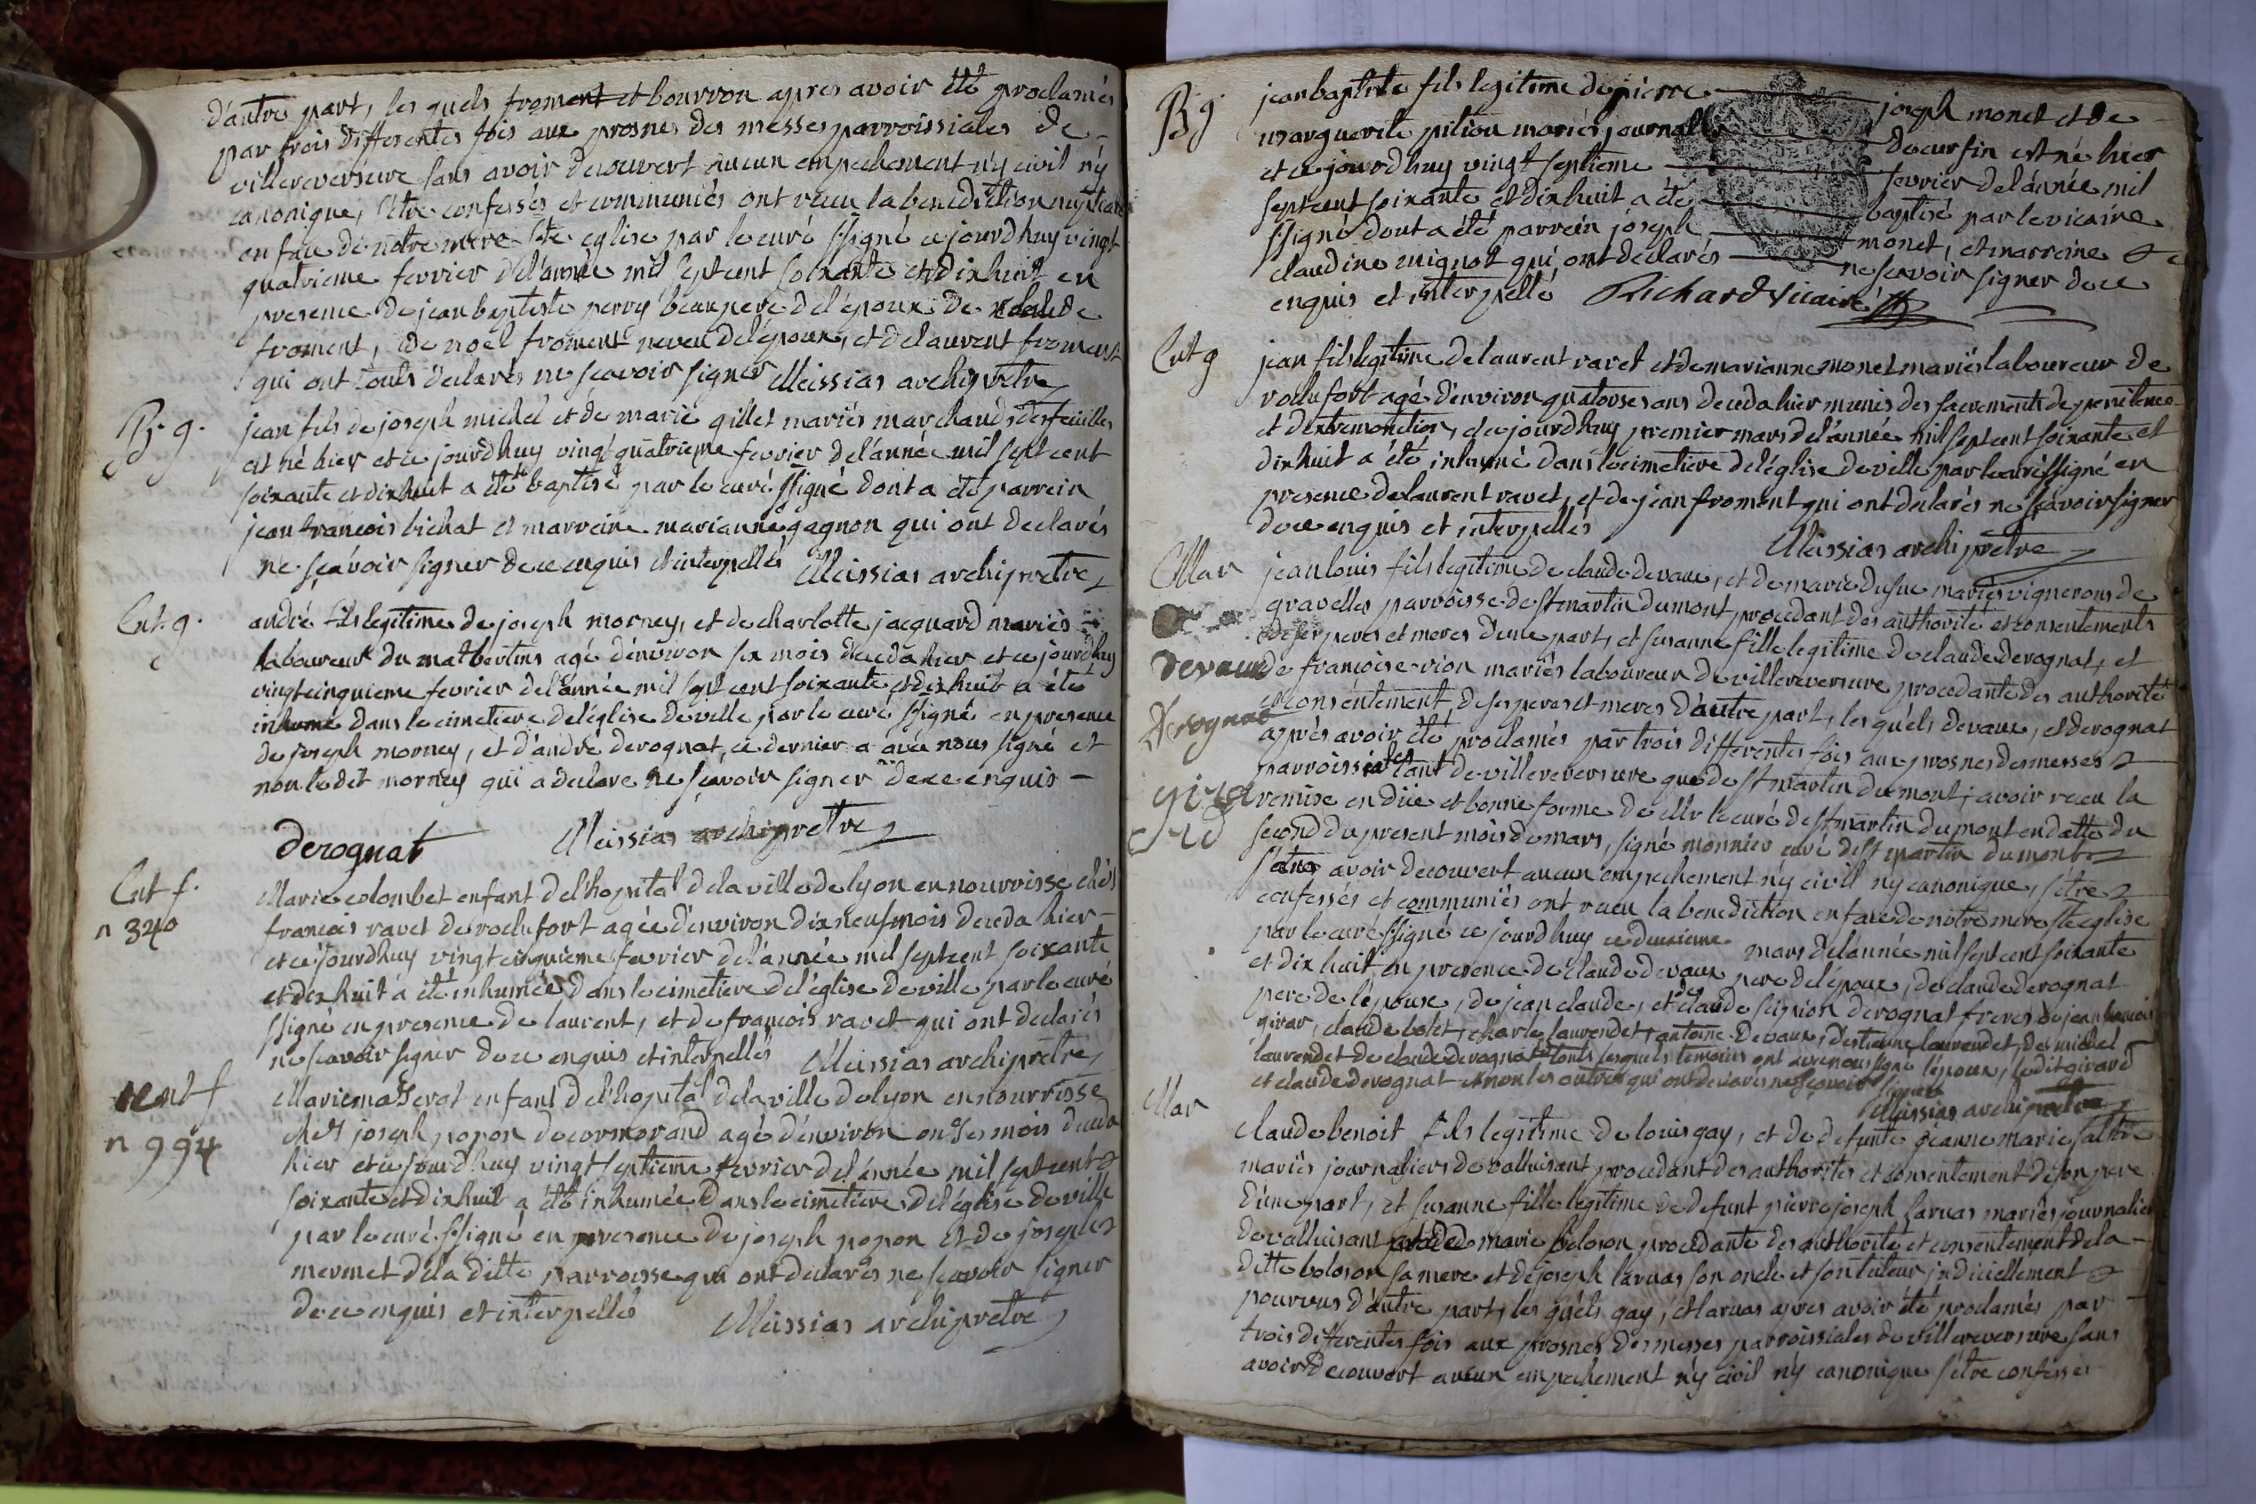 d'autre part, les quels froment et bourron apres avoir été proclamés
par trois differentes fois aux prosnes des messes parroissiales de
villereversure sans avoir decouvert aucun empechement n'y civil n'y
canonique, s'être confessés et communiés ont reçu la benediction nuptiale
en face de notre mere Ste eglise par le curé ssigné ce jourdhuy vingt
quatrieme fevrier de l'année mil sept cent soixante et dixhuit en
presence de jean baptiste perry beaupere de l'époux de claude
froment, de noel froment neveu de l'époux, et de laurent froment
qui ont touts declarés ne sçavoir signer Meissias archiprêtre
B. g.
jean fils de joseph michel et de marie gillet mariés marchands desfeuilles
est né hier et ce jourdhuy vingt quatrieme fevrier de l'année mil sept cent
soixante et dixhuit a été baptisé par le curé ssigné dont a été parrein
jean françois bichat et marreine marianne gagnon qui ont declarés
ne sçavoir signer de ce enquis et interpellés Meissias archiprêtre
Ent. g.
andré fils legitime de joseph morney, et de charlotte jacquard mariés
laboureur du mas bertins agé d'environ six mois deceda hier et ce jourdhuy
vingtcinquieme fevrier de l'année mil sept cent soixante et dixhuit a été
inhumé dans le cimetiere de l'église de ville par le curé ssigné en presence
de joseph morney, et d'andré derognat, ce dernier a avec nous signé et
non le dit morney qui a declaré ne sçavoir signer de ce enquis
derognat Meissias archiprêtre
Ent f.
n 340
Marie colombet enfant de l'hopital de la ville de lyon en nourrisse chés
françois ravet de rochefort agée d'environ dix neuf mois deceda hier
et ce jourdhuy vingtcinquieme fevrier de l'année mil sept cent soixante
et dixhuit a été inhumée dans le cimetiere de l'église de ville par le curé
ssigné en presence de laurent, et de françois ravet qui ont declarés
ne sçavoir signer de ce enquis et interpellés Meissias archiprêtre
ent f
n 994
Marie enfant de l'hopital de la ville de lyon en nourrisse
chés joseph popon de cormorand agé d'environ onses mois deceda
hier et ce jourdhuy vingt septieme fevrier de l'année mil sept cent
soixante et dixhuit a été inhumée dans le cimetiere de l'église de ville
par le curé ssigné en presence de joseph popon et de joseph
mermet de la ditte parroisse qui ont declarés ne sçavoir signer
de ce enquis et interpellé Meissias archiprêtre
B g
jean baptiste fils legitime de pierre joseph monet et de
marguerite pition mariés journallier decurfin est né hier
et ce jourdhuy vingt septieme fevrier de l'année mil
sept cent soixante et dixhuit a été baptisé par le vicaire
ssigné dont a été parrein joseph monet, et marreine
claudine mignot qui ont declarés ne sçavoir signer de ce
enquis et interpellé Richard Vicaire
Ent g
jean fils legitime de laurent ravet et de marianne monet mariés laboureur de
rochefort agé d'environ quatorses ans deceda hier munis des sacrements de penitence
et d'extremonction, et ce jourdhuy premier mars de l'année mil sept cent soixante et
dixhuit a été inhumé dans le cimetiere de l'église de ville par le curé ssigné en
presence de laurent ravet, et de jean froment qui ont declarés ne sçavoir signer
de ce enquis et interpellés
Meissias archiprêtre
Mar
jean louis fils legitime de claude devaux, et de marie mariés vignerons de
gravelles parroisse de St martin du mont procedant des authorité et consentements
de ses peres et meres d'une part, et susanne fille legitime de claude derognat, et
devaux
de françoise vion mariés laboureur de villereversure procedante des authorité
et consentement de ses peres et meres d'autre part, les quels devaux, et derognat
derognat
après avoir été proclamés par trois differentes fois aux prosnes des messes
parroissiales tant de villereversure que de St martin du mont, avoir reçu la
remise en düe et bonne forme de Mr le curé de St martin du mont en datte du
second du present mois de mars, signé monnier curé de St martin du mont
sans avoir decouvert aucun empechement n'y civil n'y canonique, s'être
confessés et communiés ont reçu la bénediction en face de notre mere Ste eglise
par le curé ssigné ce jourdhuy ce deuxieme mars de l'année mil sept cent soixante
et dixhuit, en presence de claude devaux pere de l'époux, de claude derognat
pere de l'épouse, de jean claude, et de claude derognat freres de jean françois
girar, claude bolet, charle laurendet, antoine devaux, d'estienne laurendet, de michel
laurendet de claude derognat touts lesquels temoins ont avec nous signé l'époux, le dit girard
et claude derognat et non les autres qui ont declarés ne sçavoir signer
Meissias archiprêtre
Mar
Claude benoit fils legitime de louis gay, et de defunte jeanne marie
mariés journaliers de valluisant procedant des authorités et consentement de son pere
d'une part, et susanne fille legitime de defunt pierre joseph larnas mariés journalier
de valluisant et de marie boloson procedante des authorité et consentement de la
ditte boloson sa mere et de joseph larnas son oncle et son tuteur judiciellement
pourvus d'autre part, les quels gay, et larnas apres avoir été proclamés par
trois differentes fois aux prosnes des messes parroissiales de villereversure sans
avoir decouvert aucun empechement n'y civil n'y canonique s'être confessés